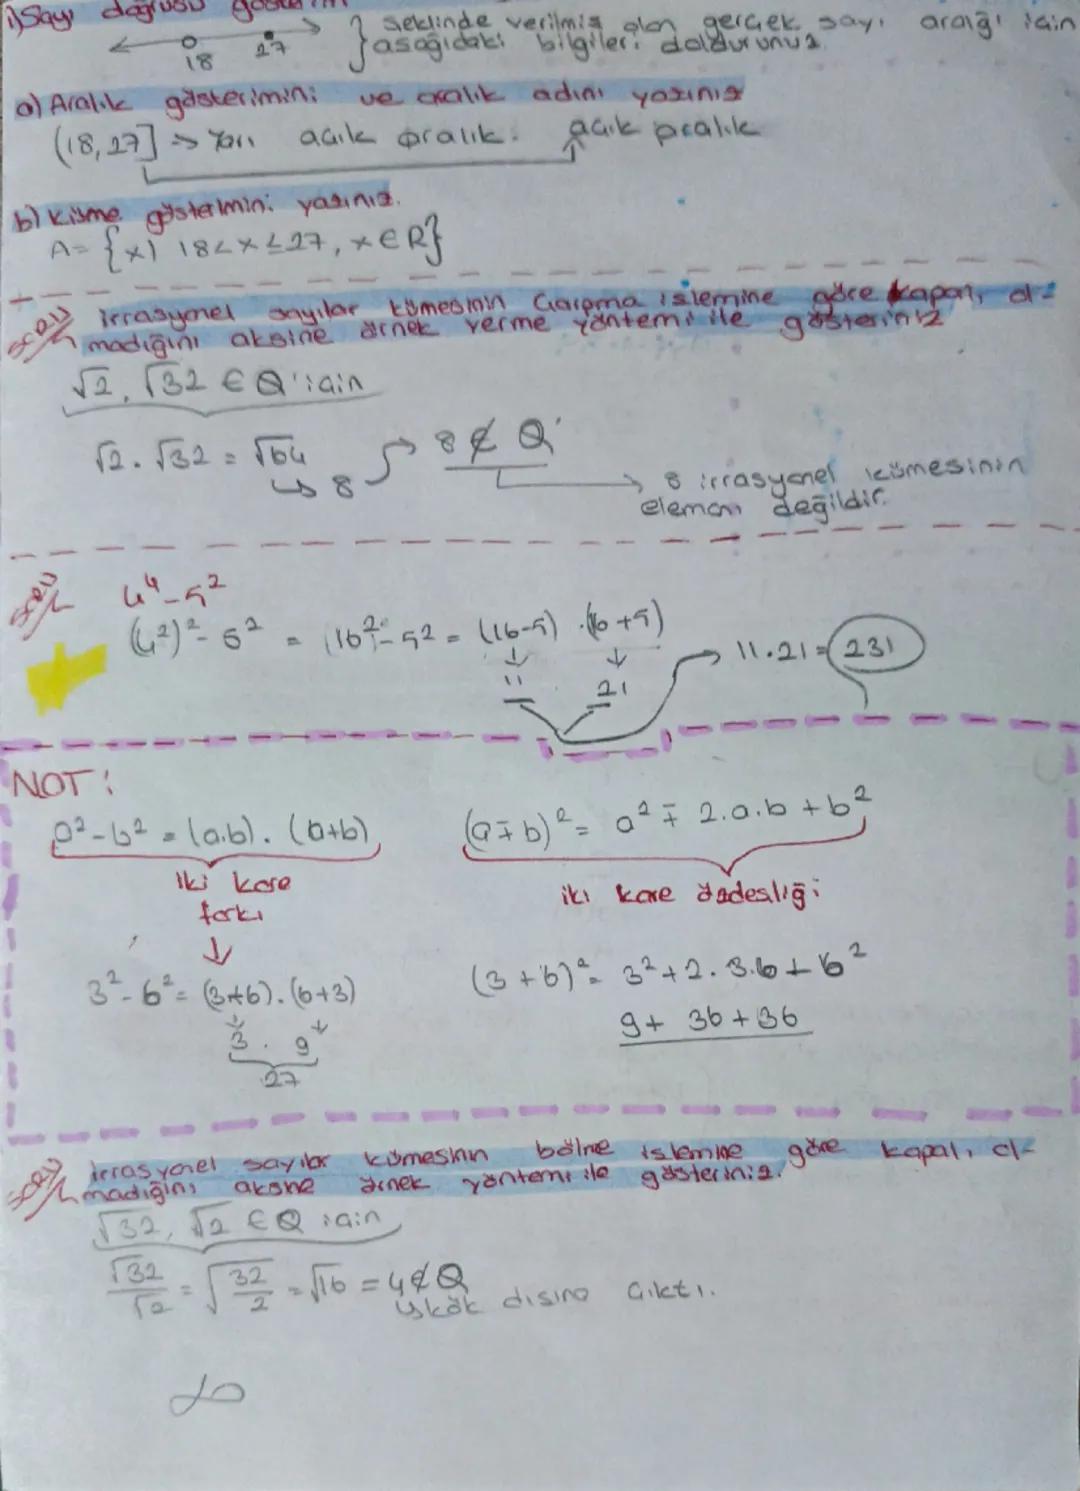 i) Sayı doğrusu gösterim
18 27 } şeklinde verilmiş olan gerçek sayı aralığı için
aşağıdaki bilgileri doldurunuz.
a) Aralık gösterimini ve aralık adını yazınız
(18,27] => Yarı açık aralık. açık aralık
b) Küme gösterimini yazınız.
A= {x| 18<x≤27, x∈R}
irrasyonel sayılar kümesinin Çarpma işlemine göre kapalı ol-
madığını aksine örnek verme yöntemi ile gösteriniz
√2, √32 ∈ Q' için
√2 . √32 = √64
↳ 8
8 ∉ Q'
→ 8 irrasyonel kümesinin
elemanı değildir.
4⁴-5²
(4²)²- 5² = 16²-5² = (16-5) .(16+5)
11 21
→ 11.21= 231
NOT:
a²-b² = (a.b). (a+b)
iki kare
farkı
3²-6²= (3+6).(6+3)
3 . 9
27
(a∓b)² = a² ∓ 2.a.b + b²
iki kare özdesliği
(3+6)² = 3²+2.3.6+6²
9+ 36+36
irrasyonel sayılar kümesinin bölme işlemine göre kapalı ol-
madığını aksine örnek yöntemi ile gösteriniz.
√32, √2 ∈ Q için
√32/√2 = √32/2 = √16 = 4∉Q
↳ kök dısına çıktı.